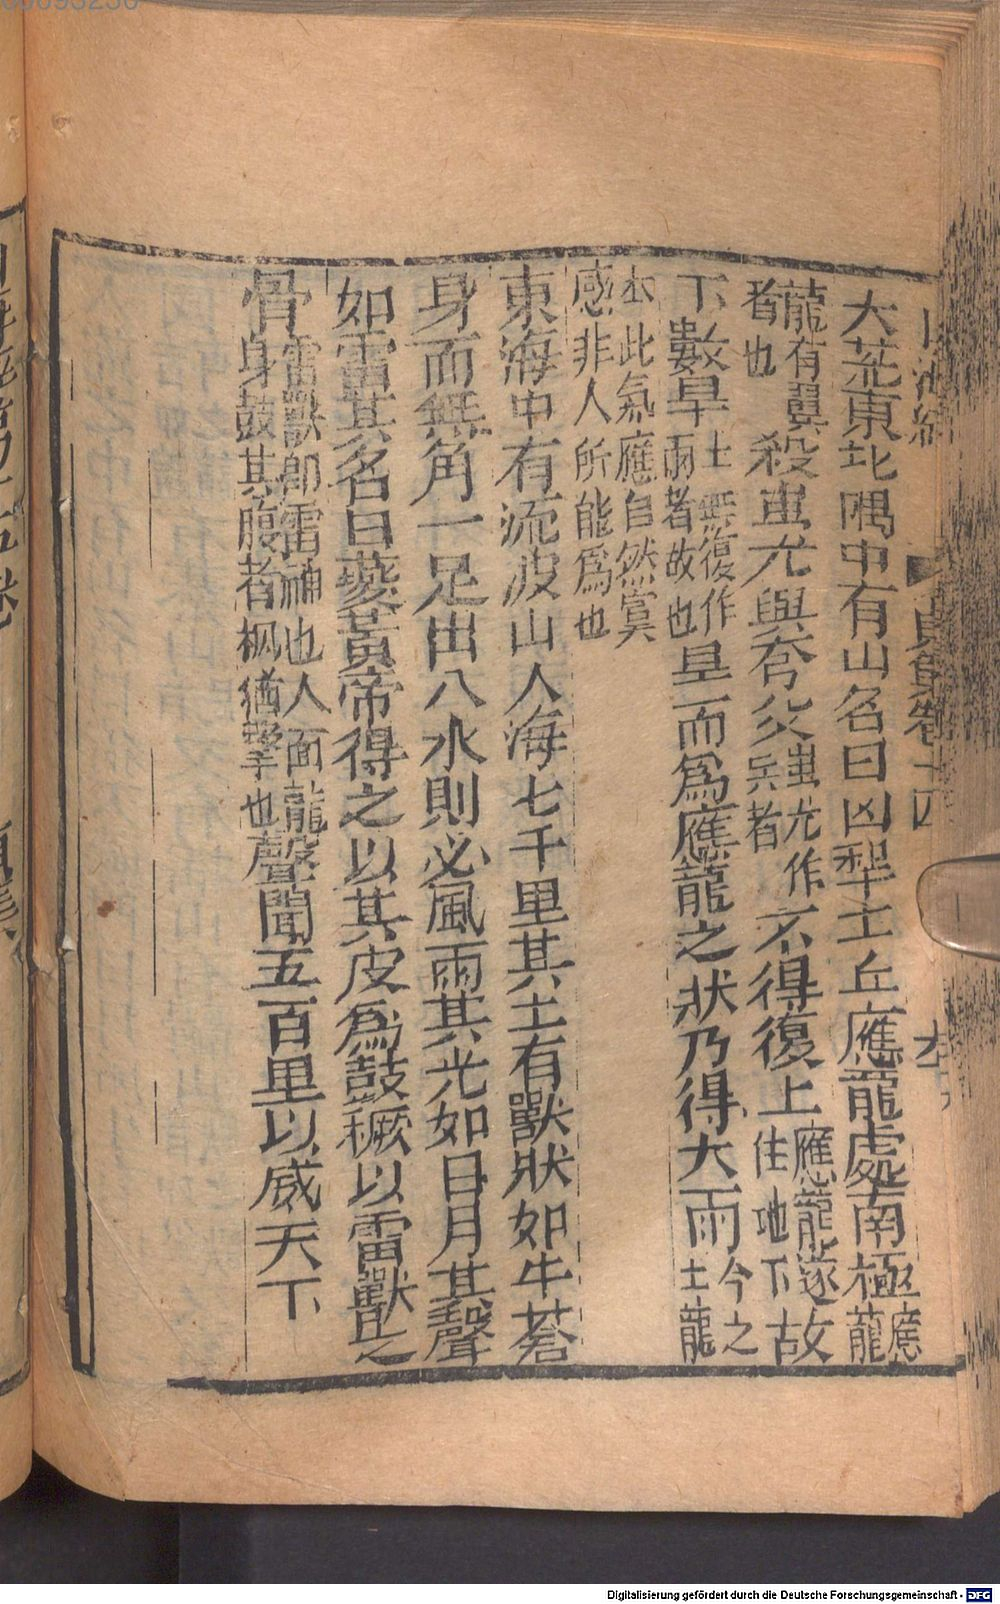 大荒東北隅中有山名曰凶犁土丘應龍處南極應龍
龍有翼
者也
殺蚩尤與夸父蚩尤作
兵者
不得復上應龍遂
住地下
故
下數旱上無復作
雨者故也
旱而爲應龍之狀乃得大雨今之
土龍
本此氣應自然冥
感非人所能爲也
東海中有流波山入海七千里其上有獸狀如牛蒼
身而無角一足出入水則必風雨其光如日月其聲
如雷其名曰夔黃帝得之以其皮爲鼓橛以雷獸之
骨雷獸即雷神也人面龍
身鼓其腹者橛猶擊也
聲聞五百里以威天下
Digitalisierung gefördert durch die Deutsche Forschungsgemeinschaft - DFG